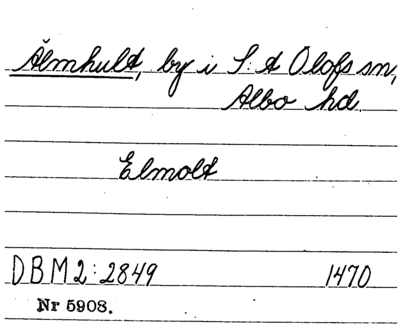 Älmhult, by i S:t Olofs sn,
Albo hd.
Elmolt
DBM2:2849 1470
Nr 5908.